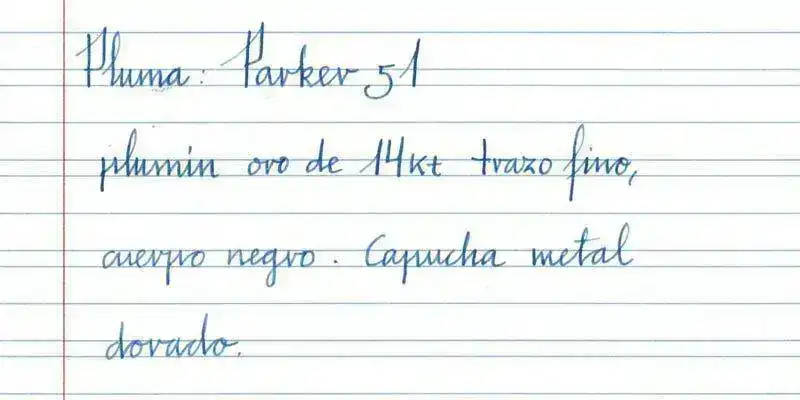 Pluma: Parker 51
plumin oro de 14kt trazo fino,
cuerpo negro. Capucha metal
dorado.